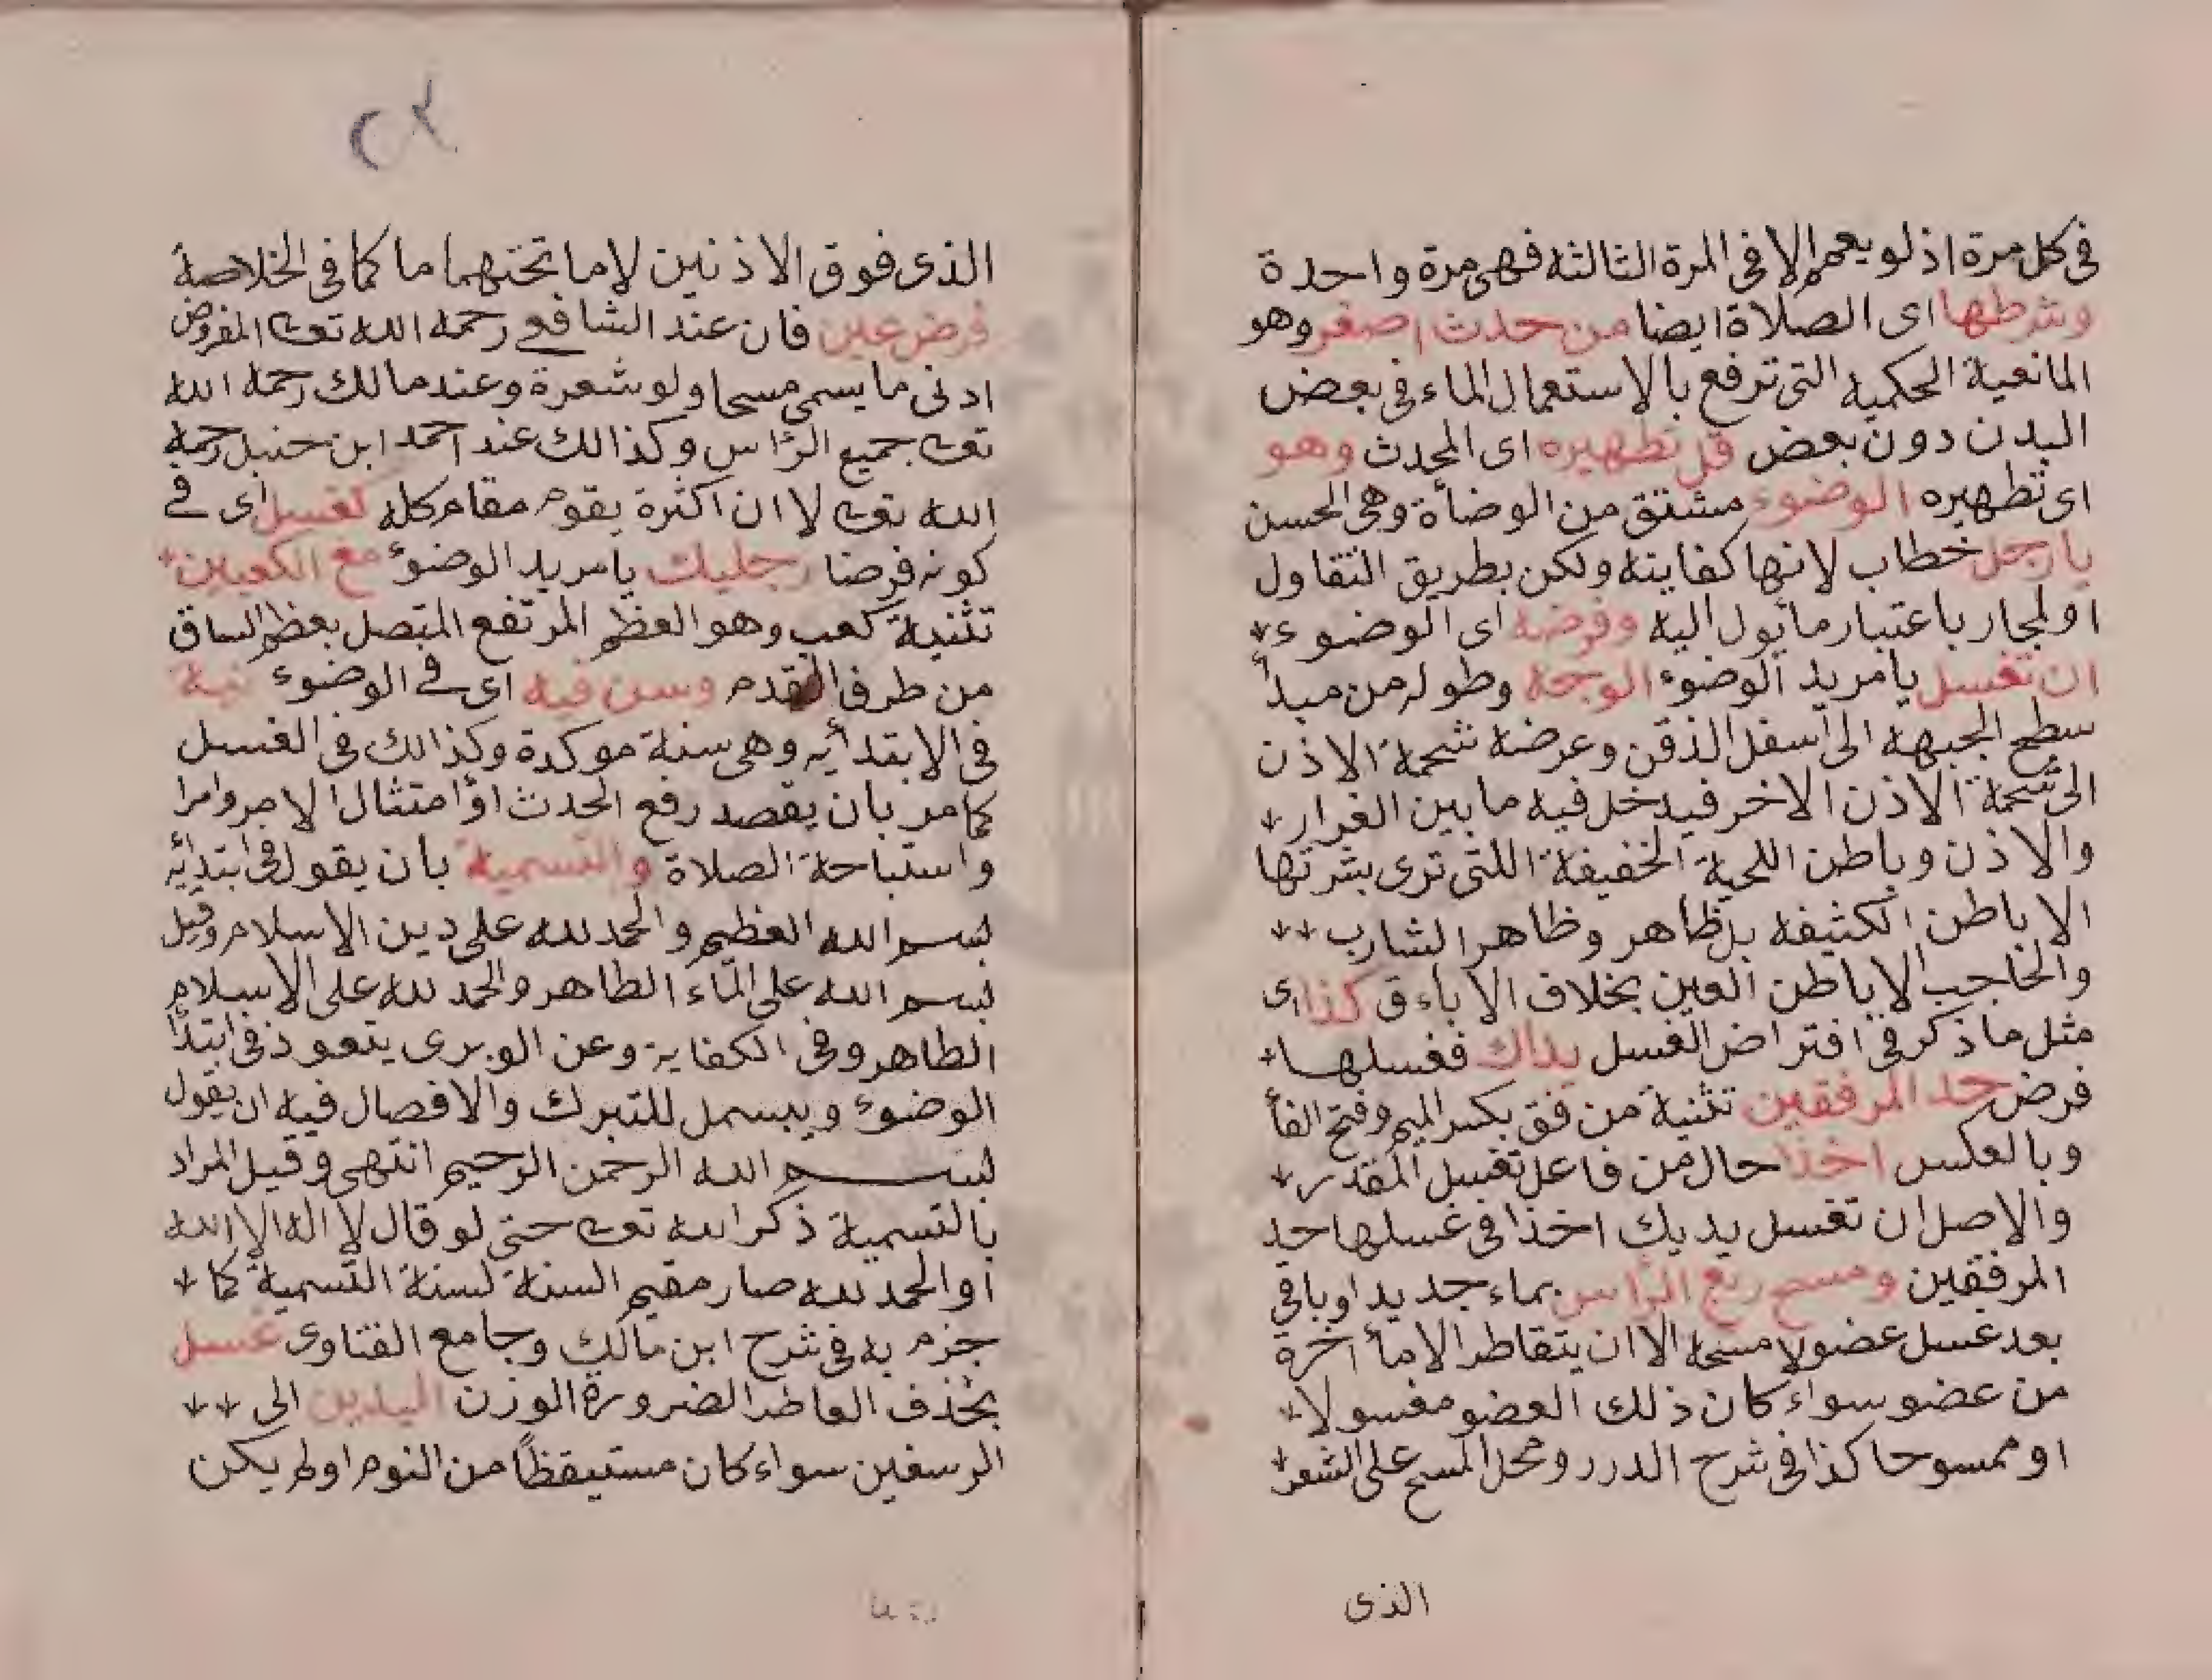 فى كل مرة اذ لو يعم الا فى المرة الثالثه فهى مرة واحدة
وشرطها اى الصلاة ايضا من حدث اصغر وهو
المانعية الحكميه التى ترفع بالاستعمال الماء فى بعض
البدن دون بعض قل تطهيره اى المحدث وهو
اى تطهيره الوضوء مشتق من الوضأة وهى الحسن
يا رجل خطاب لانها كفايته ولكن بطريق التقاول
او لمجار باعتبار مايول اليه وفرضه اى الوضوء
ان تغسل يا مريد الوضوء الوجه وطوله من مبدأ
سطح الجبهه الى اسفل الذقن وعرضه شحمة الاذن
الى شحمة الاذن الاخر فيدخل فيه ما بين العذار
والاذن وباطن اللحية الخفيفة اللتى ترى بشرتها
الا باطن الكثيفه بل ظاهر وظاهر الشارب
والحاجب لا باطن العين بخلاف الاباءق كذا اى
مثل ما ذكر فى افتراض الغسل يداك فغسلها
فرض حد المرفقين تثنية من فق بكسر الميم وفتح الفأ
وبالعكس اخذا حال من فاعل تغسل المقدر
والاصل ان تغسل يديك اخذا فى غسلها حد
المرفقين ومسح ربع الرأس بماء جديد او باقى
بعد غسل عضو لا مسحه الا ان يتقاطر الا مأ اخرة
من عضو سواء كان ذلك العضو مغسولا
او ممسوحا كذا فى شرح الدرر ومحل المسح على الشعر
الذى
٢٢
الذى فوق الاذنين لا ما تحتهما ما كما فى الخلاصة
فرض عين فان عند الشافعى رحمه الله تعا المفروض
ادنى ما يسمى مسحا ولو شعرة وعند مالك رحمه الله
تعا جميع الرأس وكذالك عند احمد ابن حنبل رحمه
الله تعا لا ان اكثرة يقوم مقام كله كغسل اى فى
كونه فرضا رجليك يا مريد الوضوء مع الكعبين
تثنية كعب وهو العظم المرتفع المتصل بعظم الساق
من طرف القدم وسن فيه اى فى الوضوء نية
فى الابتدأيه وهى سنة موكدة وكذالك فى الغسل
كما مر بان يقصد رفع الحدث او امتثال الامر وامرا
واستباحة الصلاة والتسمية بان يقول فى ابتدائه
بسم الله العظيم والحمد لله على دين الاسلام وقيل
بسم الله على الماء الطاهر والحمد لله على الاسلام
الطاهر وفى الكفاية وعن الوبرى يتعوذ فى ابتدأ
الوضوء ويبسمل للتبرك والافصال فيه ان يقول
بسم الله الرحمن الرحيم انتهى وقيل المراد
بالتسمية ذكر الله تعا حتى لو قال لا اله الا الله
او الحمد لله صار مقيم السنة لسنة التسمية كما
جزم به فى شرح ابن مالك وجامع الفتاوى غسل
بحذف العاطر الضرورة الوزن اليدين الى
الرسغين سواء كان مستيقظاً من النوم او لم يكن